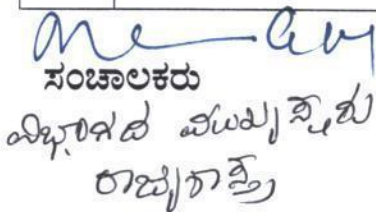 ಸಂಚಾಲಕರು
ವಿಭಾಗದ ಮುಖ್ಯಸ್ಥರು
ರಾಜ್ಯಶಾಸ್ತ್ರ